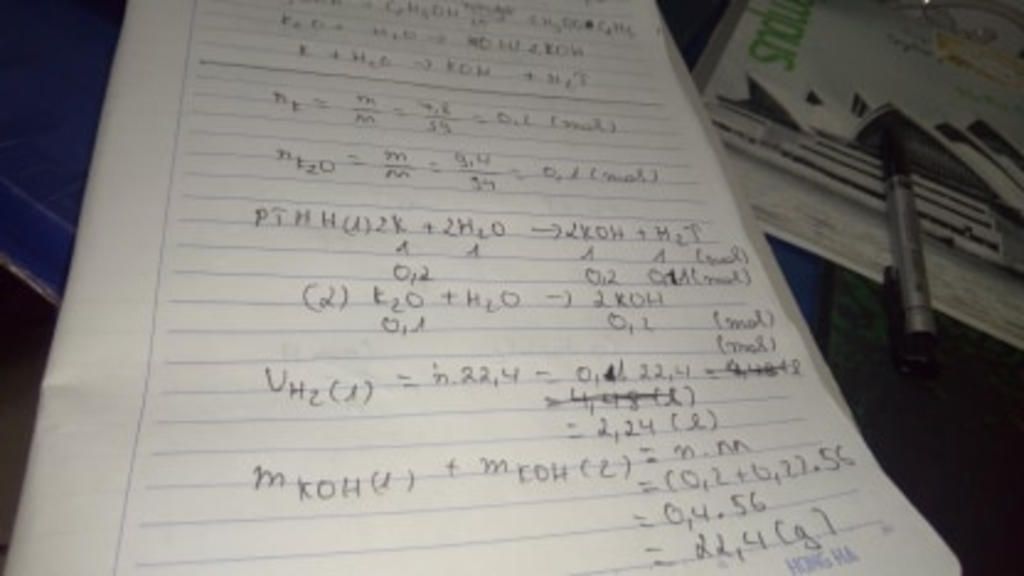 + C₂H₅OH
K₂O + H₂O → 2KOH
K + H₂O → KOH + H₂↑
n_K = m/m = 7,8/39 = 0,2 (mol)
n_K₂O = m/m = 9,4/94 = 0,1 (mol)
PTHH (1) 2K + 2H₂O → 2KOH + H₂↑
1 1 1 1 (mol)
0,2 0,2 0,1 (mol)
(2) K₂O + H₂O → 2KOH
0,1 0,2 (mol)
(mol)
V_H₂(1) = n.22,4 = 0,1.22,4 = 4,48 l
= 4,48 (l)
= 2,24 (l)
m_KOH(1) + m_KOH(2) = n.m
= (0,2+0,2).56
= 0,4.56
= 22,4 (g)
HONG HA